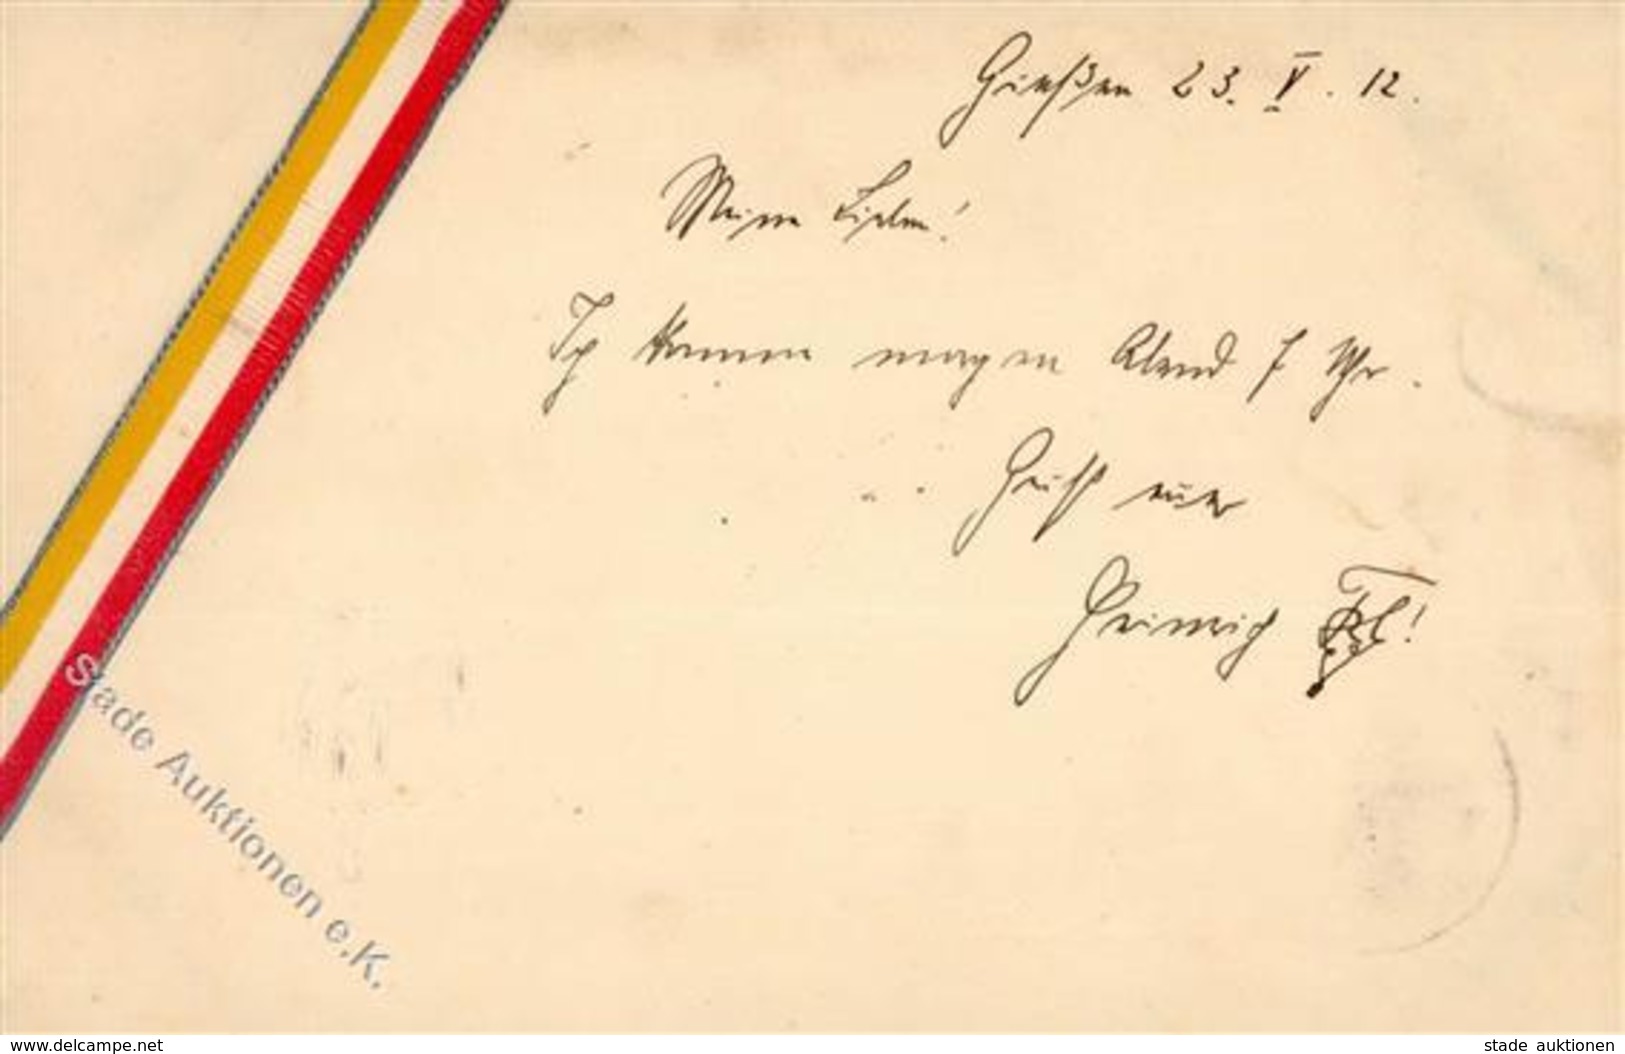 Gießen 23. V. 12.
Meine Lieben!
Ich komme morgen Abend 7 Uhr.
Gruß euer
Heinrich
Stade Auktionen e.K.
www.delcampe.net
stade auktionen